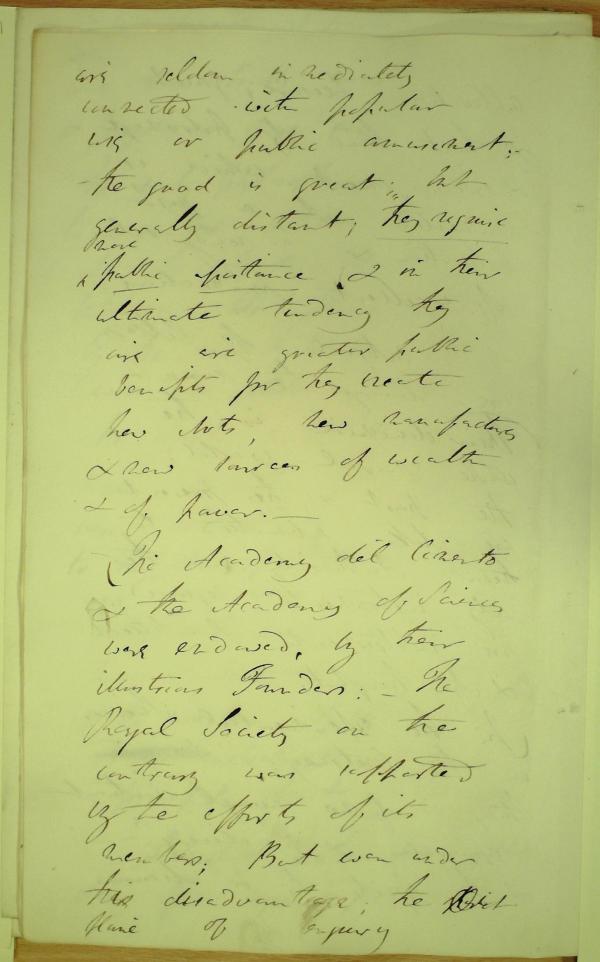 are seldom immediately
connected with popular
use or public amusement;
- the good is great; but
generally distant; they require
more
& public assistance & in their
ultimate tendency they
are are greater public
benefits for they create
new Arts, new manufactures
& new sources of wealth
& of power. —
The Academy del Cimento
& the Academy of Sciences
were endowed, by their
illustrious Founders: - The
Royal Society on the
contrary was supported
by the efforts of its
members; But even under
this disadvantage; the
plane of enquiry